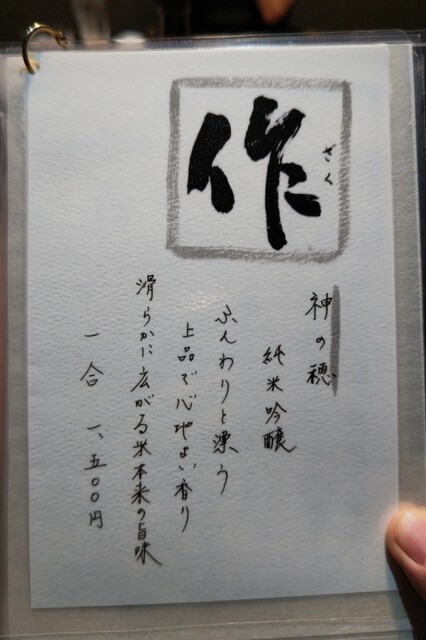 作
ざく
神の穂
純米吟醸
ふんわりと漂う
上品で心地よい香り
滑らかに広がる米本来の旨味
一合 一、五〇〇円